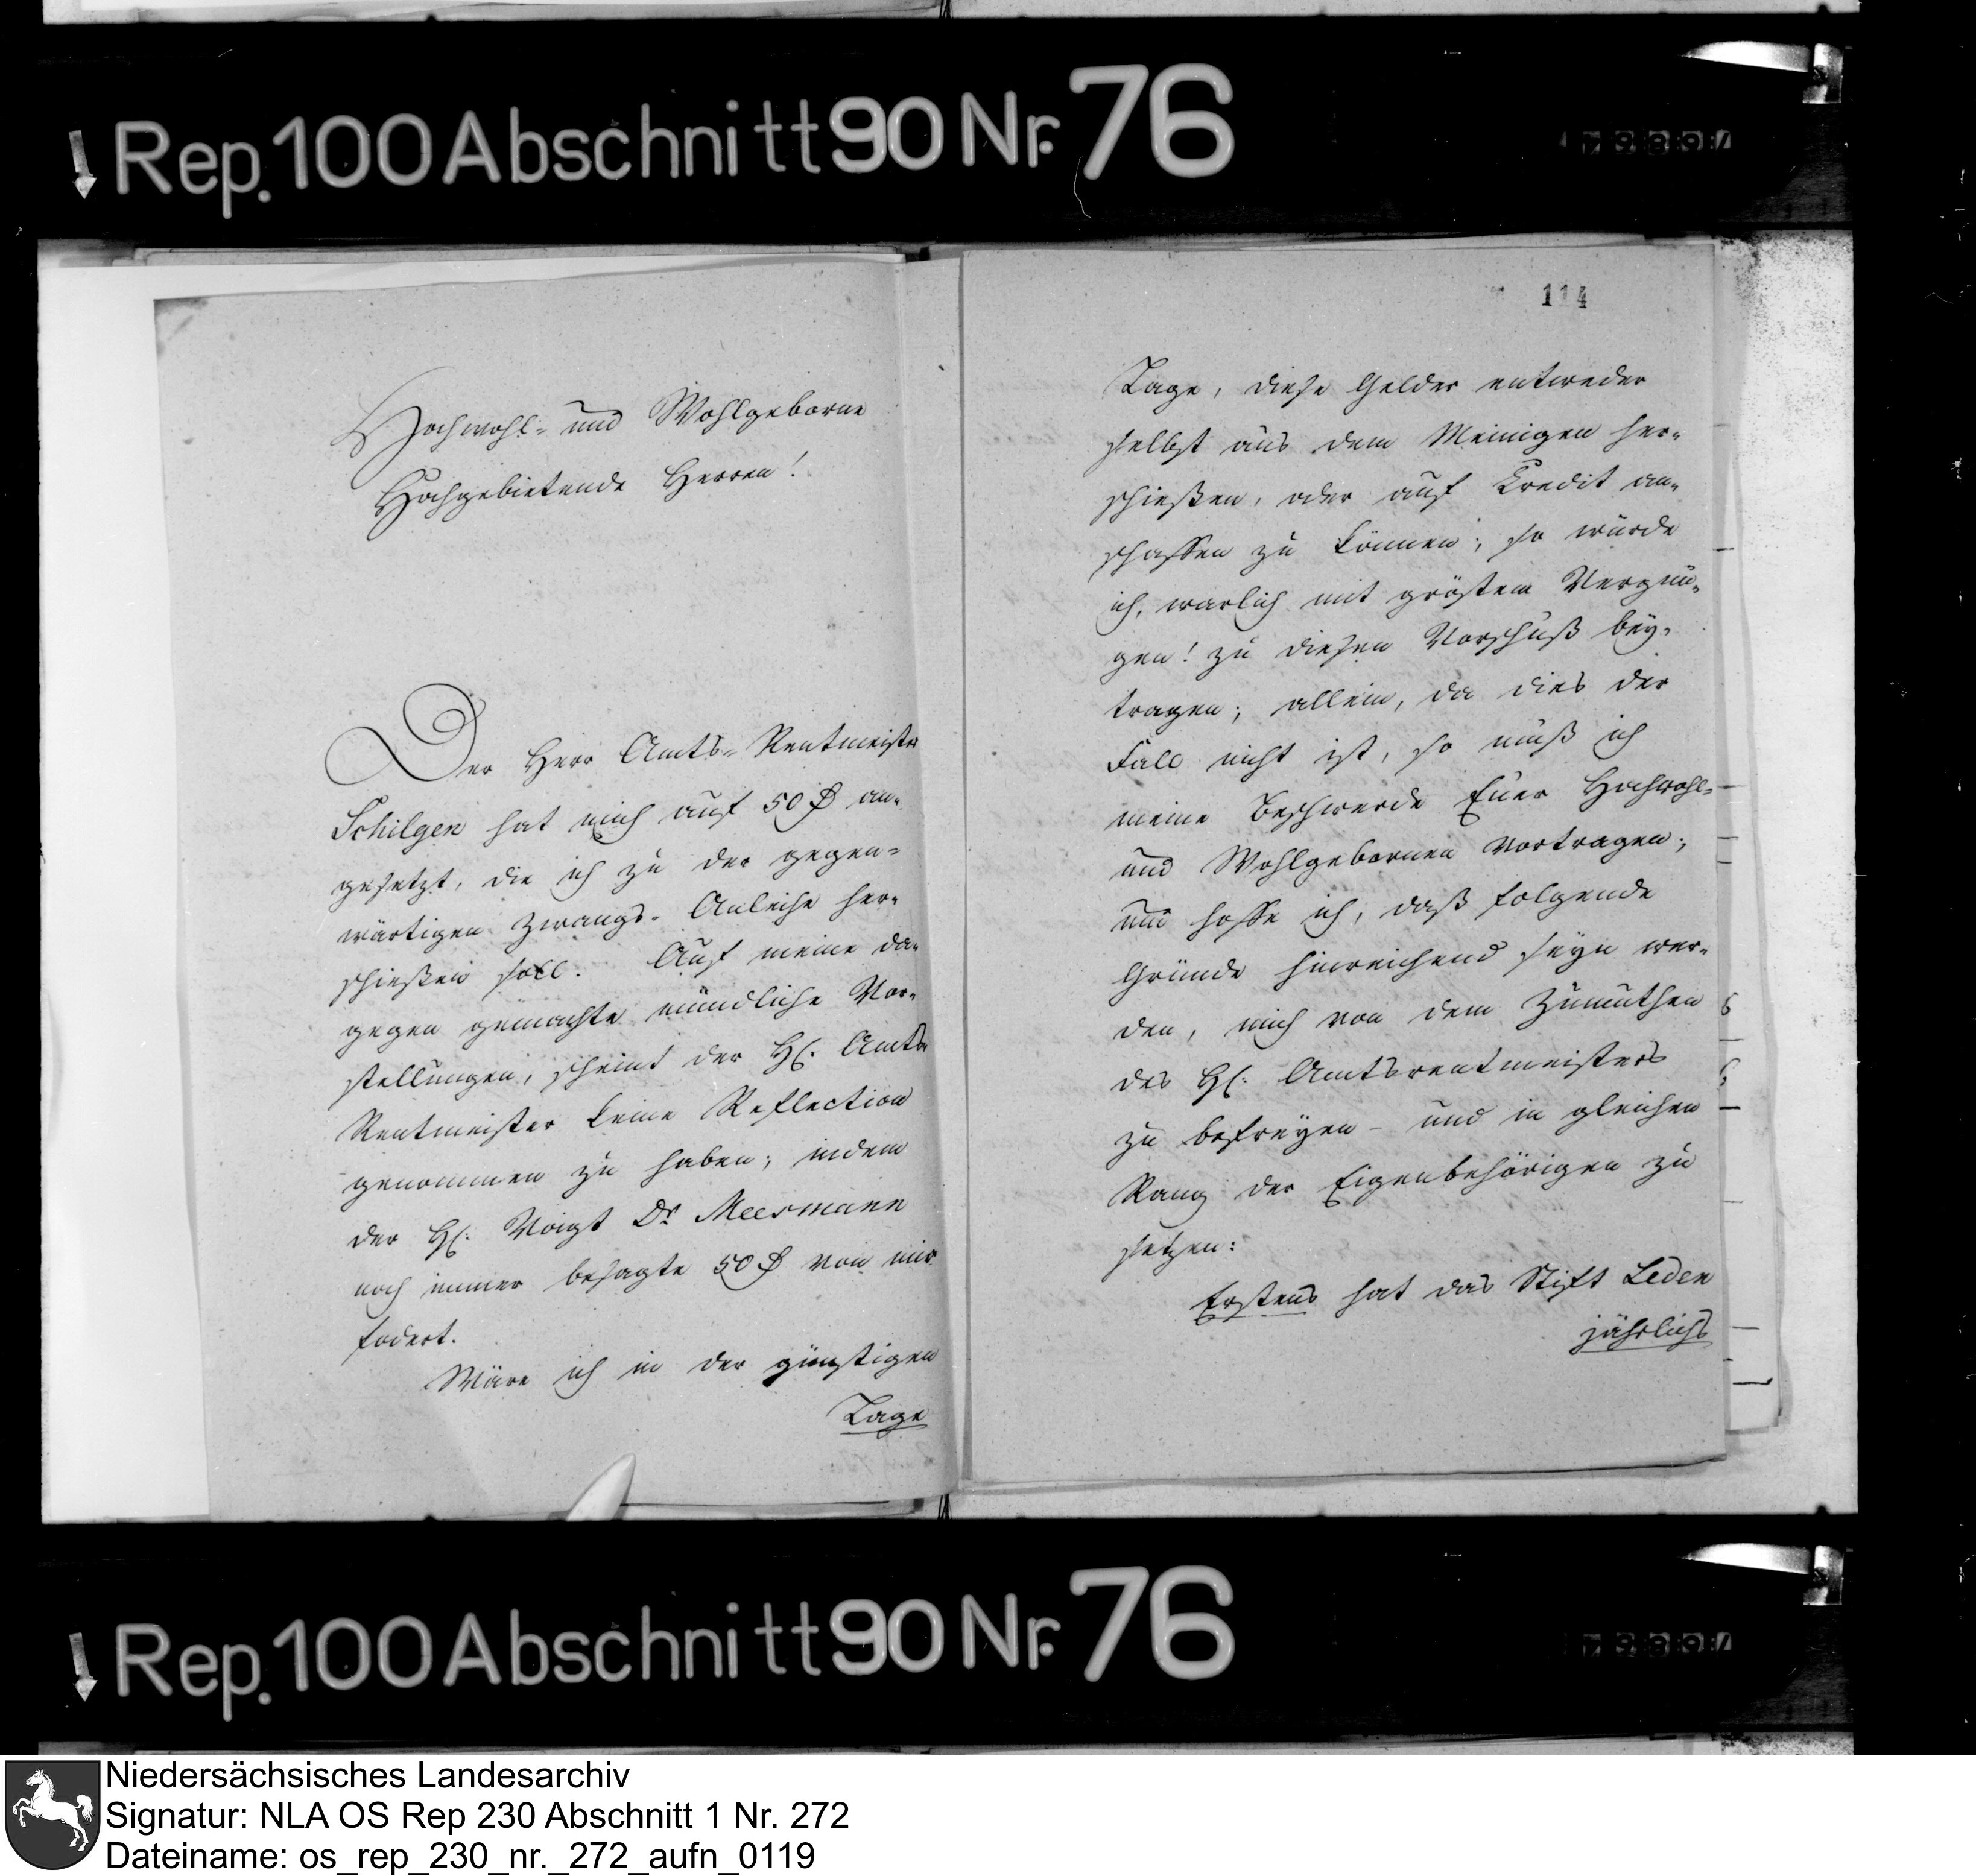 Rep. 100 Abschnitt 90 Nr. 76
Hochwohl- und Wohlgeborne
Hochgebietende Herren!
Der Herr Amts-Rentmeister
Schilgen hat mich auf 50 Rthlr an-
gesetzt, die ich zu der gegen-
wärtigen Zwangs-Anleihe her-
schießen soll. Auf meine da-
gegen gemachte mündliche Vor-
stellungen, scheint der H. Amts
Rentmeister keine Reflection
genommen zu haben; indem
der H. Voigt Dr Meesmann
noch immer besagte 50 Rthlr von mir
fodert.
Wäre ich in der günstigen
Lage
114
Lage, diese Gelder entweder
selbst aus dem Meinigen her-
schießen, oder auf Credit an-
schaffen zu können; so würde
ich, warlich mit gröstem Vergnü-
gen! zu diesen Vorschuß bey-
tragen; allein, da dies der
Fall nicht ist, so muß ich
meine Beschwerde Euer Hochwohl-
und Wohlgebornen vortragen;
und hoffe ich, daß folgende
Gründe hinreichend seyn wer-
den, mich von dem Zumuthen
des H. Amtsrentmeisters
zu befreyen - und in gleichen
Rang der Eigenbehörigen zu
setzen:
Erstens hat das Stift Leden
jährlichs
Rep. 100 Abschnitt 90 Nr. 76
Niedersächsisches Landesarchiv
Signatur: NLA OS Rep 230 Abschnitt 1 Nr. 272
Dateiname: os_rep_230_nr._272_aufn_0119